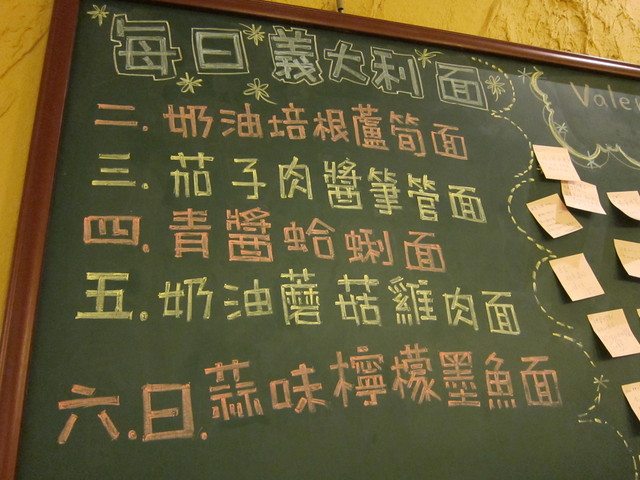 每日義大利面
二. 奶油培根蘆筍面
三. 茄子肉醬筆管面
四. 青醬蛤蜊面
五. 奶油蘑菇雞肉面
六.日.蒜味檸檬墨魚面
Vale